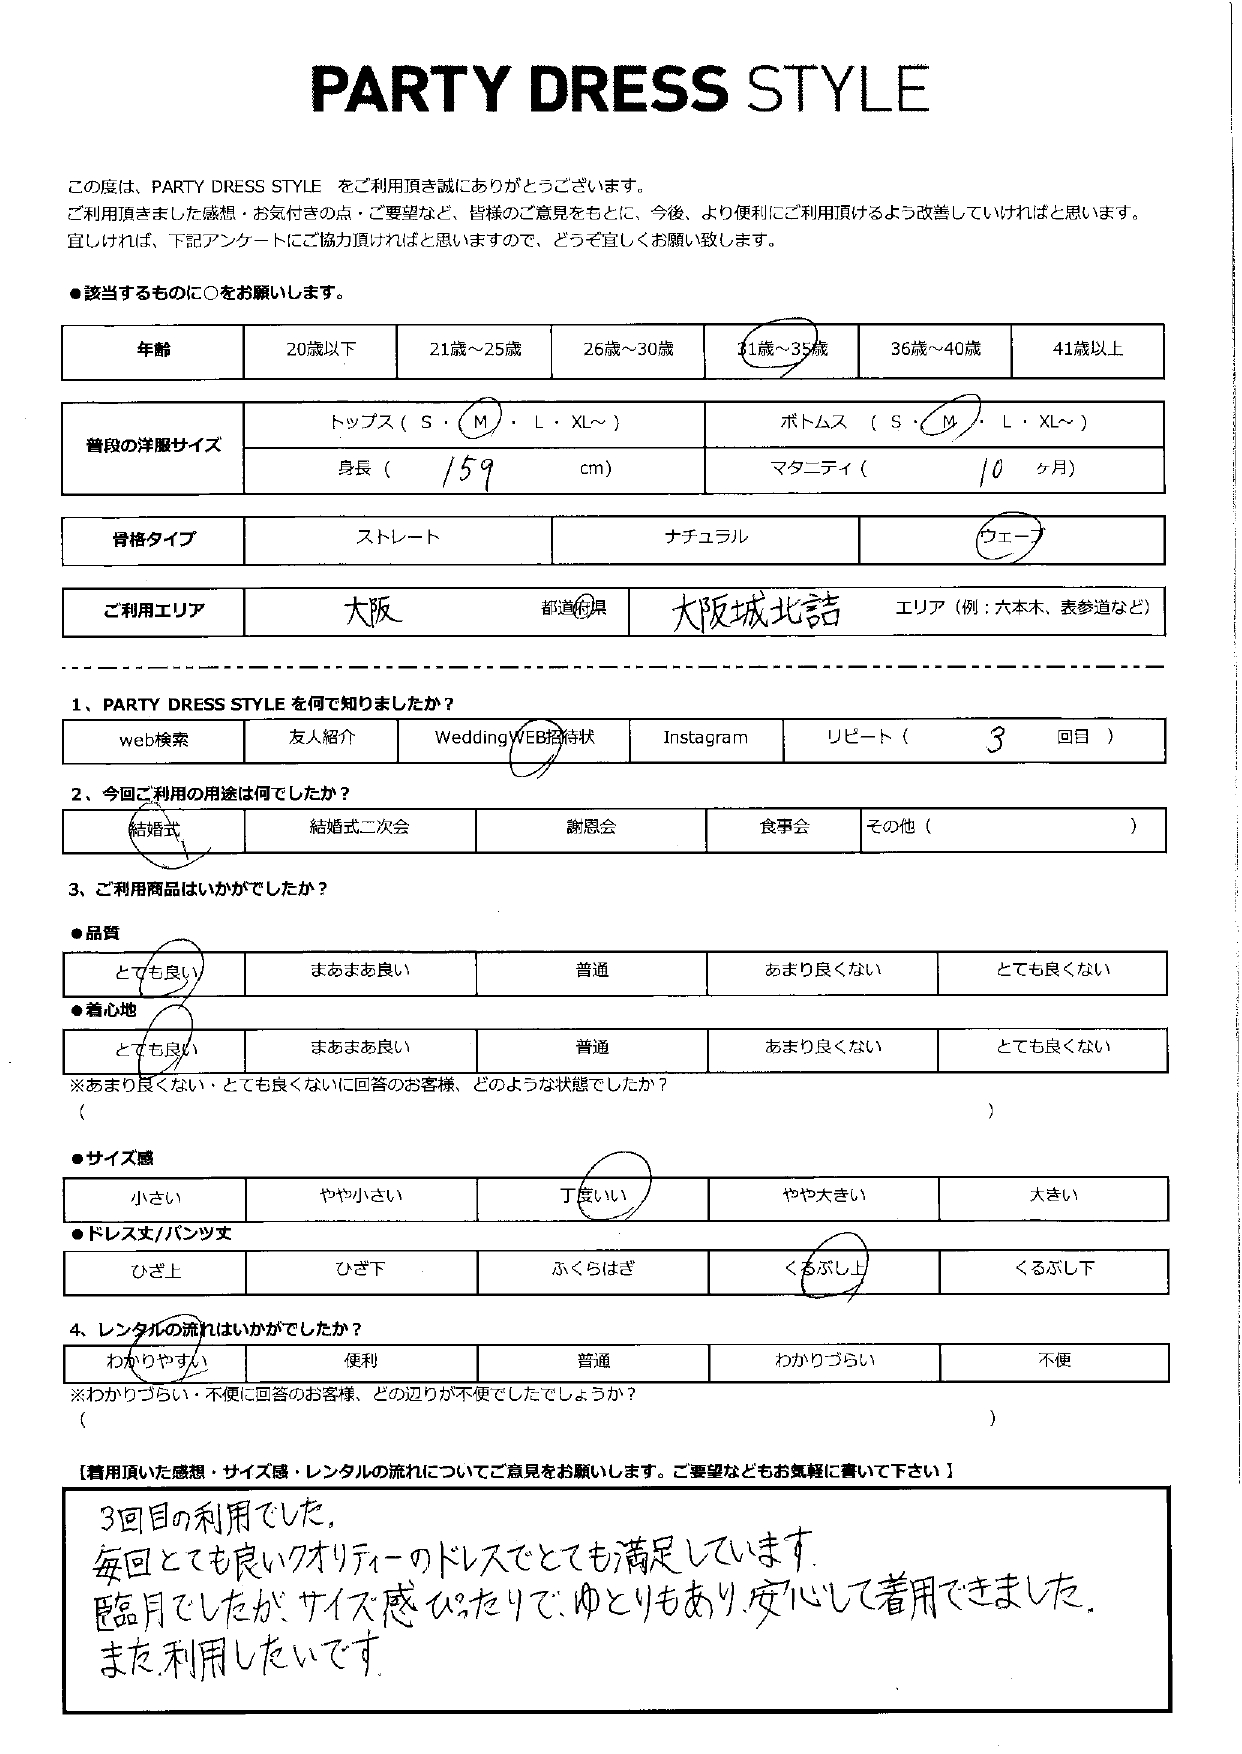 PARTY DRESS STYLE
この度は、PARTY DRESS STYLE をご利用頂き誠にありがとうございます。
ご利用頂きました感想・お気付きの点・ご要望など、皆様のご意見をもとに、今後、より便利にご利用頂けるよう改善していければと思います。
宜しければ、下記アンケートにご協力頂ければと思いますので、どうぞ宜しくお願い致します。
●該当するものに○をお願いします。
年齢 20歳以下 21歳～25歳 26歳～30歳 31歳～35歳 36歳～40歳 41歳以上
普段の洋服サイズ トップス ( S ・ M ・ L ・ XL～ ) ボトムス ( S ・ M ・ L ・ XL～ )
身長 ( 159 cm) マタニティ ( 10 ヶ月)
骨格タイプ ストレート ナチュラル ウェーブ
ご利用エリア 大阪 都道府県 大阪城北詰 エリア（例：六本木、表参道など）
1、PARTY DRESS STYLE を何で知りましたか？
web検索 友人紹介 WeddingWEB招待状 Instagram リピート ( 3 回目 )
2、今回ご利用の用途は何でしたか？
結婚式 結婚式二次会 謝恩会 食事会 その他 ( )
3、ご利用商品はいかがでしたか？
●品質
とても良い まあまあ良い 普通 あまり良くない とても良くない
●着心地
とても良い まあまあ良い 普通 あまり良くない とても良くない
※あまり良くない・とても良くないに回答のお客様、どのような状態でしたか？
( )
●サイズ感
小さい やや小さい 丁度いい やや大きい 大きい
●ドレス丈/パンツ丈
ひざ上 ひざ下 ふくらはぎ くるぶし上 くるぶし下
4、レンタルの流れはいかがでしたか？
わかりやすい 便利 普通 わかりづらい 不便
※わかりづらい・不便に回答のお客様、どの辺りが不便でしたでしょうか？
( )
【着用頂いた感想・サイズ感・レンタルの流れについてご意見をお願いします。ご要望などもお気軽に書いて下さい】
3回目の利用でした。
毎回とても良いクオリティーのドレスでとても満足しています。
臨月でしたが、サイズ感ぴったりで、ゆとりもあり、安心して着用できました。
また、利用したいです。